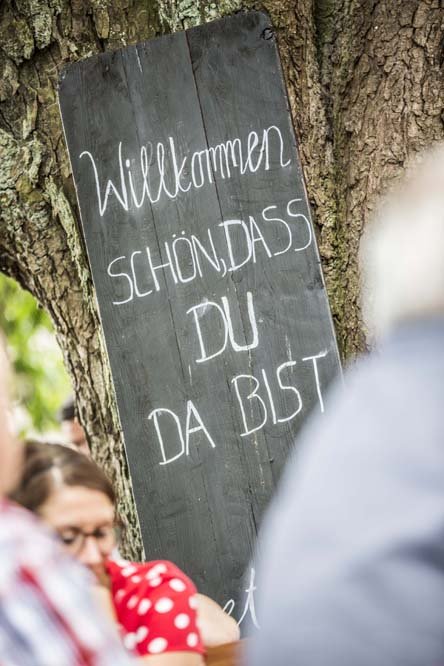 Willkommen
SCHÖN, DASS
DU
DA BIST